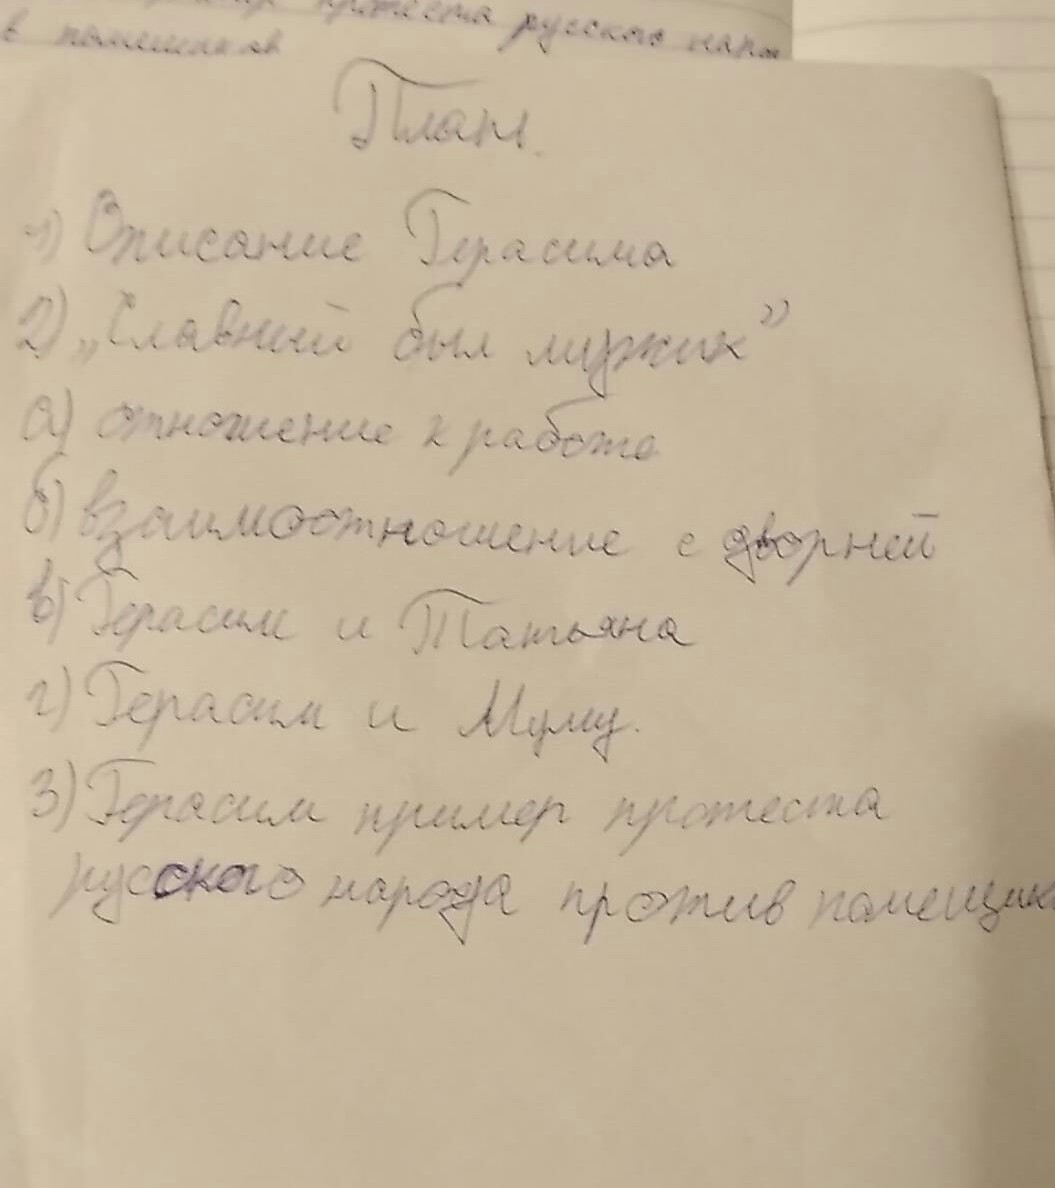 протеста русского наро
в помещиков
План.
1) Описание Герасима
2) „Славный был мужик”
а) отношение к работе
б) взаимоотношение с дворней
в) Герасим и Татьяна
г) Герасим и Муму.
3) Герасим пример протеста
русского народа против помещик